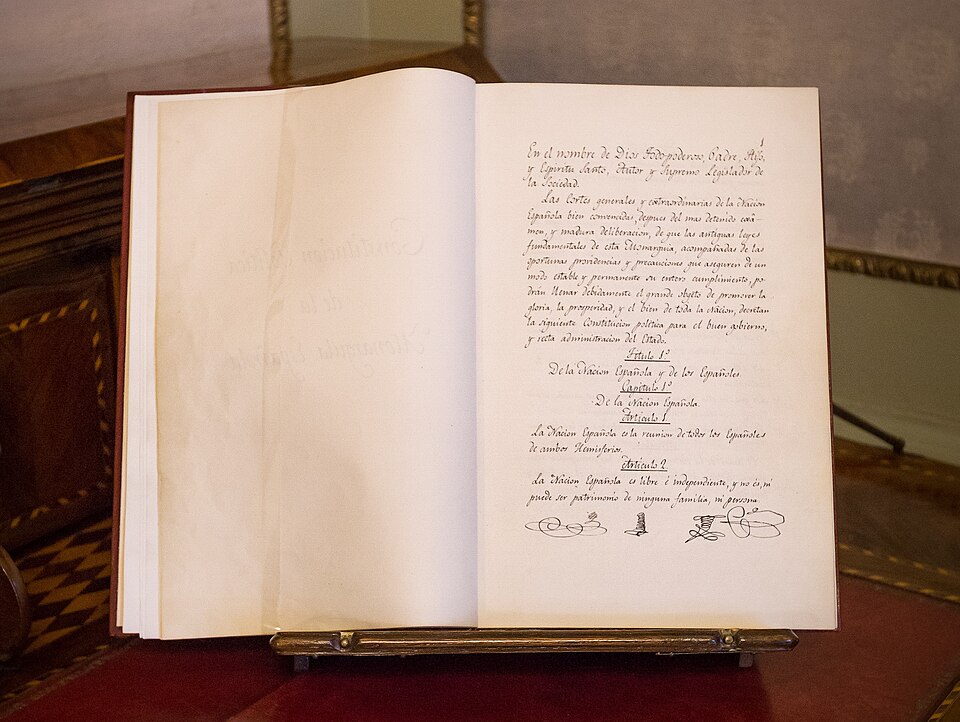 1
En el nombre de Dios Todo-poderoso, Padre, Hijo,
y Espiritu Santo, Autor y Supremo Legislador de
la Sociedad.
Las Cortes generales y extraordinarias de la Nacion
Española bien convencidas, despues del mas detenido exâ-
men, y madura deliberacion, de que las antiguas leyes
fundamentales de esta Monarquia, acompañadas de las
oportunas providencias y precauciones que aseguren de un
modo estable y permanente su entero cumplimiento, po-
drán llenar debidamente el grande objeto de promover la
gloria, la prosperidad, y el bien de toda la Nacion, decretan
la siguiente Constitucion politica para el buen gobierno,
y recta administracion del Estado.
Titulo 1º
De la Nacion Española y de los Españoles.
Capitulo 1º
De la Nacion Española.
Articulo 1.
La Nacion Española es la reunion de todos los Españoles
de ambos Hemisferios.
Articulo 2.
La Nacion Española es libre é independiente, y no es, ni
puede ser patrimonio de ninguna familia, ni persona.